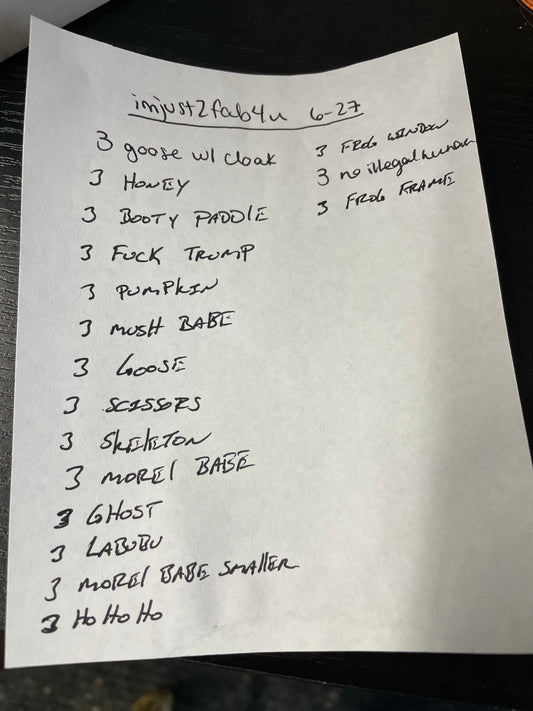 imjust2fab4u 6-27
3 goose w/ cloak
3 HONEY
3 BOOTY PADDlE
3 FUCK TRUMP
3 PUMPKIN
3 MUSH BABE
3 GOOSE
3 SCISSORS
3 SKElETON
3 MOREl BABE
3 GHOST
3 LABUBU
3 MOREl BABE SMAllER
3 Ho Ho Ho
3 FROG WINDOW
3 no illegal human
3 FROG FRAME